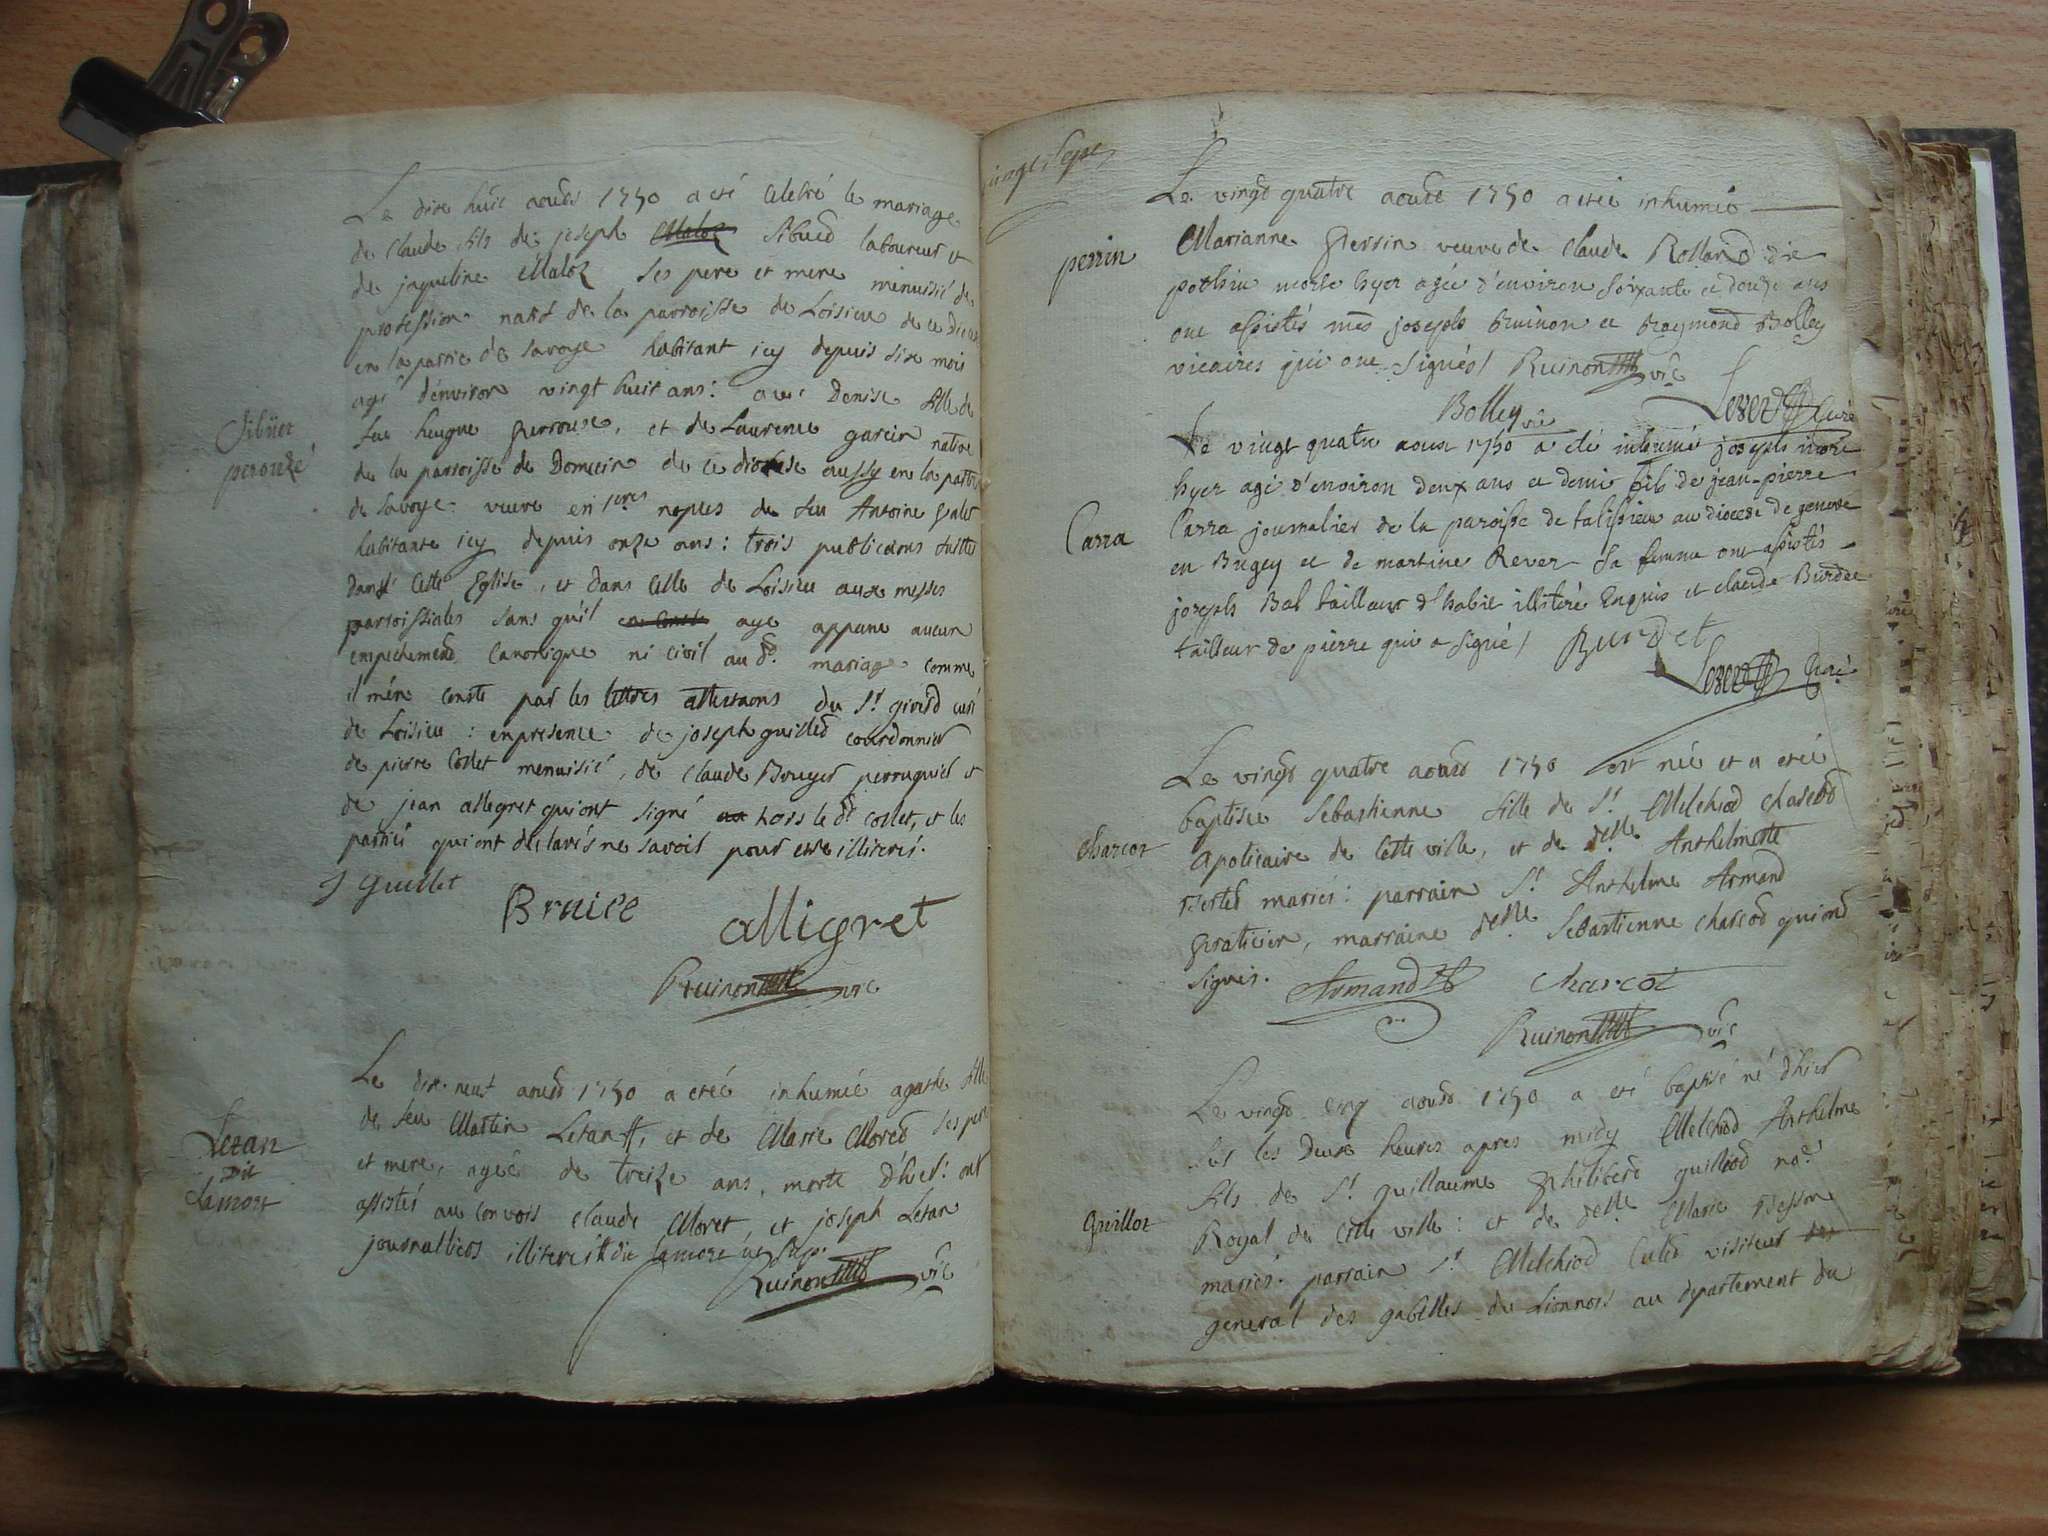 Le dix huit aoust 1750 a eté celebré le mariage
de claude fils de joseph Sibued laboureur et
de jaqueline Maloz ses pere et mere menuisié de
profession natif de la parroisse de Loisieu de ce Dioc
en la partie de Savoye habitant icy depuis six mois
agé denviron vingt huit ans: avec Denise fille de
feu hugue perrouse, et de Laurence garcin native
de la parroisse de Domecin de ce diocese aussy en la partie
de Savoye veuve en 1eres nopces de feu Antoine
habitante icy depuis onze ans: trois publicaons faittes
dans cette Eglise, et dans celle de Loisieu aux messes
parroissiales sans qu'il aye apparu aucun
empechement Canonique ni civil au dt. mariage comme
il m'en conste par les lettres attestaons du Sr. girerd curé
de Loisieu: en presence de joseph guilled courdonnier
de pierre Collet menuisié, de claude perruquié et
de jean allegret qui ont signé hors le dt collet, et les
parties qui ont declarés ne savoir pour etre illiterés.
Sibüet
perouzé
J Guillet
Bruice
alligret
Ruinon vic
Le dix neuf aoust 1750 a etée inhumée agathe fille
de feu Martin Letan #, et de Marie Moret ses pere
et mere, agée de treize ans, morte d'hier: ont
assistés au convois claude Moret, et joseph Letan
journalliers illiterés # dit Lamore
Letan
Dit
Lamort
Ruinon vic
vingt sept
Le vingt quatre aoust 1750 a etée inhumée
Marianne Perrin veuve de Claude Rolland dit
pothin morte hyer agée d'environ soixante et douze ans
ont assistés mes joseph Ruinon et Raymond Bolley
vicaires qui ont signés / Ruinon vic
perrin
Bolley vic
curé
Le vingt quatre aoust 1750 a été inhumé joseph mort
hyer agé d'environ deux ans et demi fils de jean-pierre
Carra journalier de la paroisse de talissieu au diocese de geneve
en Bugey et de martine Rever sa femme ont assistés
joseph Bal tailleur d'habit illiteré Enquis et claude Burdet
tailleur de pierre qui a signé / Burdet
Carra
Curé
Le vingt quatre aoust 1750 est née et a etée
baptisée Sebastienne fille de Sr. Melchiod charcod
apoticaire de cette ville, et de delle. Anthelmette
mariés: parrain Sr. Anthelme Armand
praticien, marraine delle. Sebastienne charcod qui ont
signés.
Charcot
Armand
Charcot
Ruinon vic
Le vingt cinq aoust 1750 a eté baptisé né d'hier
sur les deux heures apres midy Melchiod Anthelme
fils de Sr. guillaume philiberd guilliod nore
Royal de cette ville: et de delle Marie Besson
mariés. parrain Sr. Melchiod Cullet visiteur
general des gabelles du Lionnois au departement du
Guillot